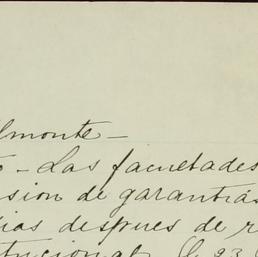 lmonte-
o - Las facultades
sion de garantías
ias despues de r
tucional